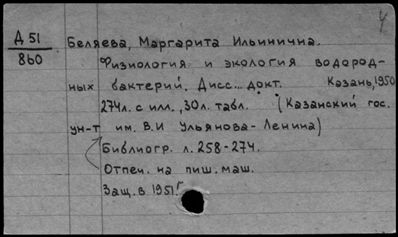 4
Д 51
860
Беляева, Маргарита Ильинична.
Физиология и экология водород-
ных бактерий. Дисс... докт. Казань, 1950
274л. с илл., 30л. табл. (Казанский гос.
ун-т им. В.И Ульянова-Ленина)
Библиогр. л. 258-274.
Отпеч. на пиш. маш.
Защ. в 1951г